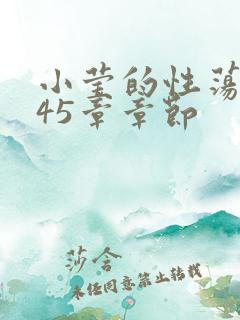 小莹的性荡
45章章节
莎含
未经同意禁止转载